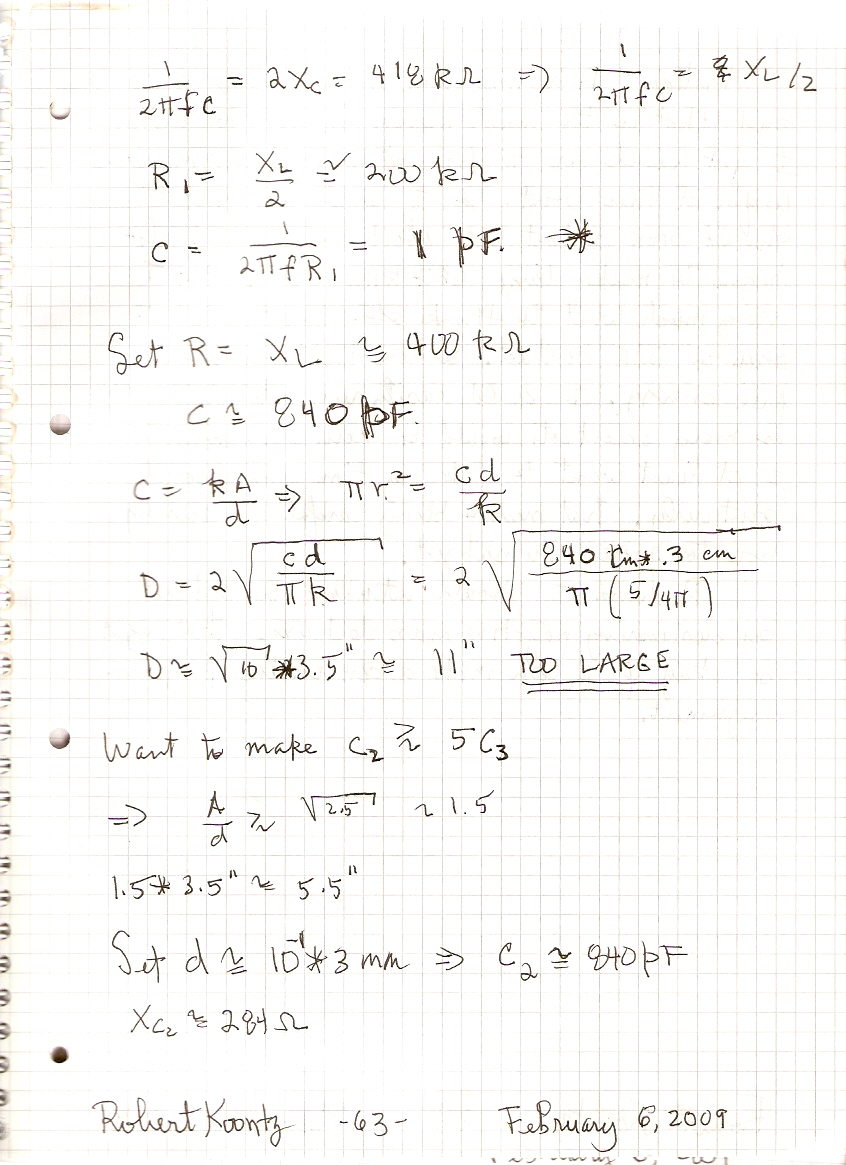 1/(2πfC) = 2X_C = 418 kΩ => 1/(2πfC) = X_L/2
R_1 = X_L/2 ≅ 200 kΩ
C = 1/(2πfR_1) = 1 pF. *
Set R = X_L ≅ 400 kΩ
C ≅ 840 pF.
C = kA/d => πr² = cd/k
D = 2√(cd/(πk)) = 2√((840 cm * .3 cm)/(π(5/4π)))
D ≅ √10 * 3.5" ≅ 11" TOO LARGE
Want to make C_2 ≳ 5C_3
=> A/d ≳ √2.5 ~ 1.5
1.5 * 3.5" ≅ 5.5"
Set d ≅ 10^-1 * 3 mm => C_2 ≅ 840 pF
X_C2 ≅ 284 Ω
Robert Koontz -63- February 6, 2009